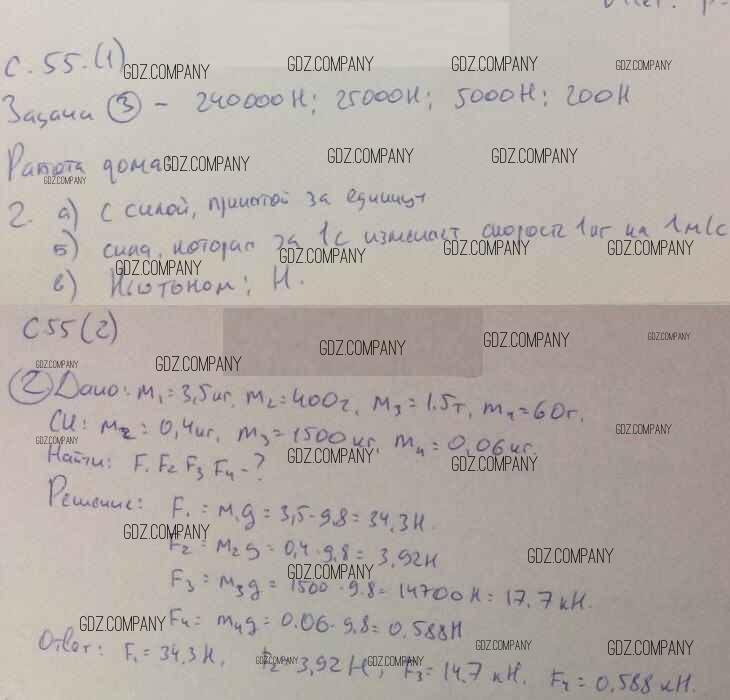 С. 55. (1)
Задача 3 - 240000Н; 25000Н; 5000Н; 200Н
Работа дома:
2. а) с силой, принятой за единицу
б) сила, которая за 1с изменяет скорость 1кг на 1м/с
в) Ньютоном; Н.
С55(2)
2 Дано: m₁=3,5кг, m₂=400г, m₃=1.5т, m₄=60г.
СИ: m₂=0,4кг, m₃=1500кг, m₄=0,06кг.
Найти: F₁ F₂ F₃ F₄-?
Решение: F₁=m₁g=3,5·9,8=34,3Н.
F₂=m₂g=0,4·9,8=3,92Н
F₃=m₃g=1500·9.8=14700Н=17.7кН.
F₄=m₄g=0.06·9.8=0,588Н
Ответ: F₁=34,3Н, F₂=3,92Н, F₃=14.7кН. F₄=0,588кН.
GDZ.COMPANY